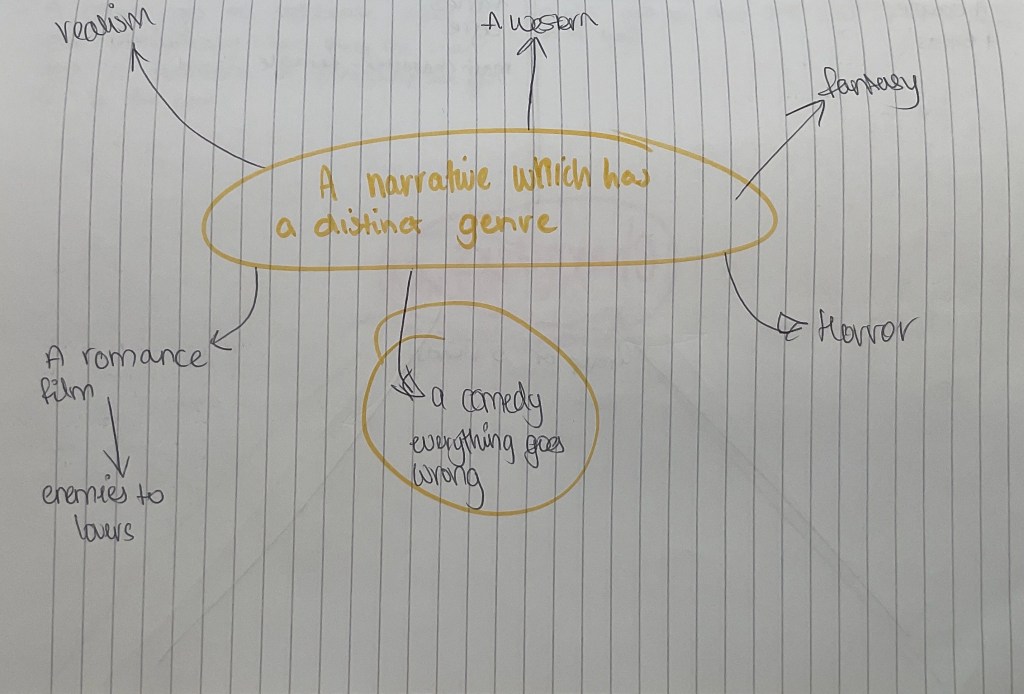 realism
A western
fantasy
A narrative which has
a distinct genre
Horror
A romance
film
enemies to
lovers
a comedy
everything goes
wrong